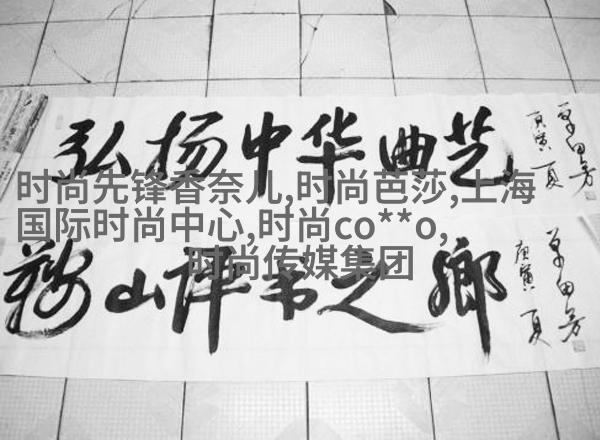 弘扬中华曲艺
庚寅夏
单田芳
时尚先锋香奈儿,时尚芭莎,上海
国际时尚中心,时尚co**o,
时尚传媒集团
鞍山评书之鄉
庚寅夏
单田芳